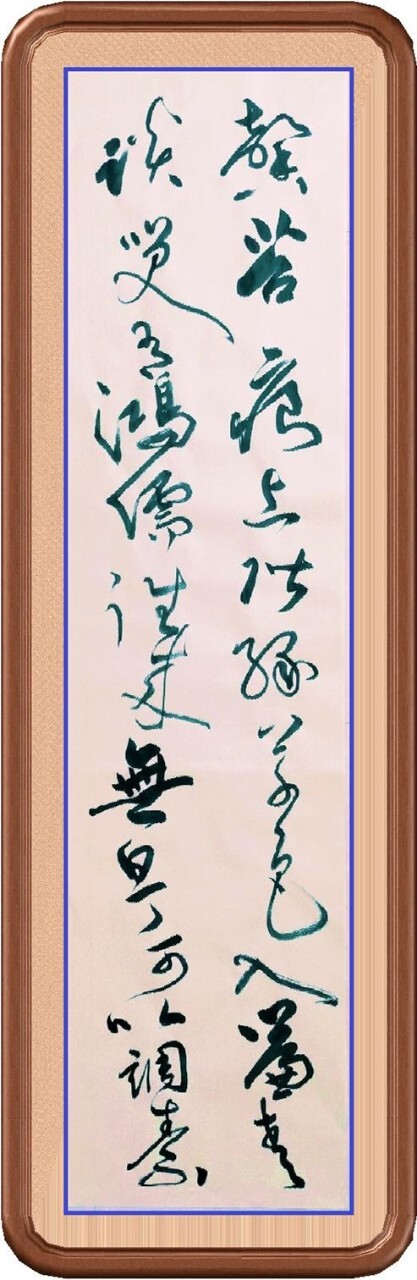 馨苔痕上阶绿草色入簾青
谈笑有鴻儒往来無白丁可以調素